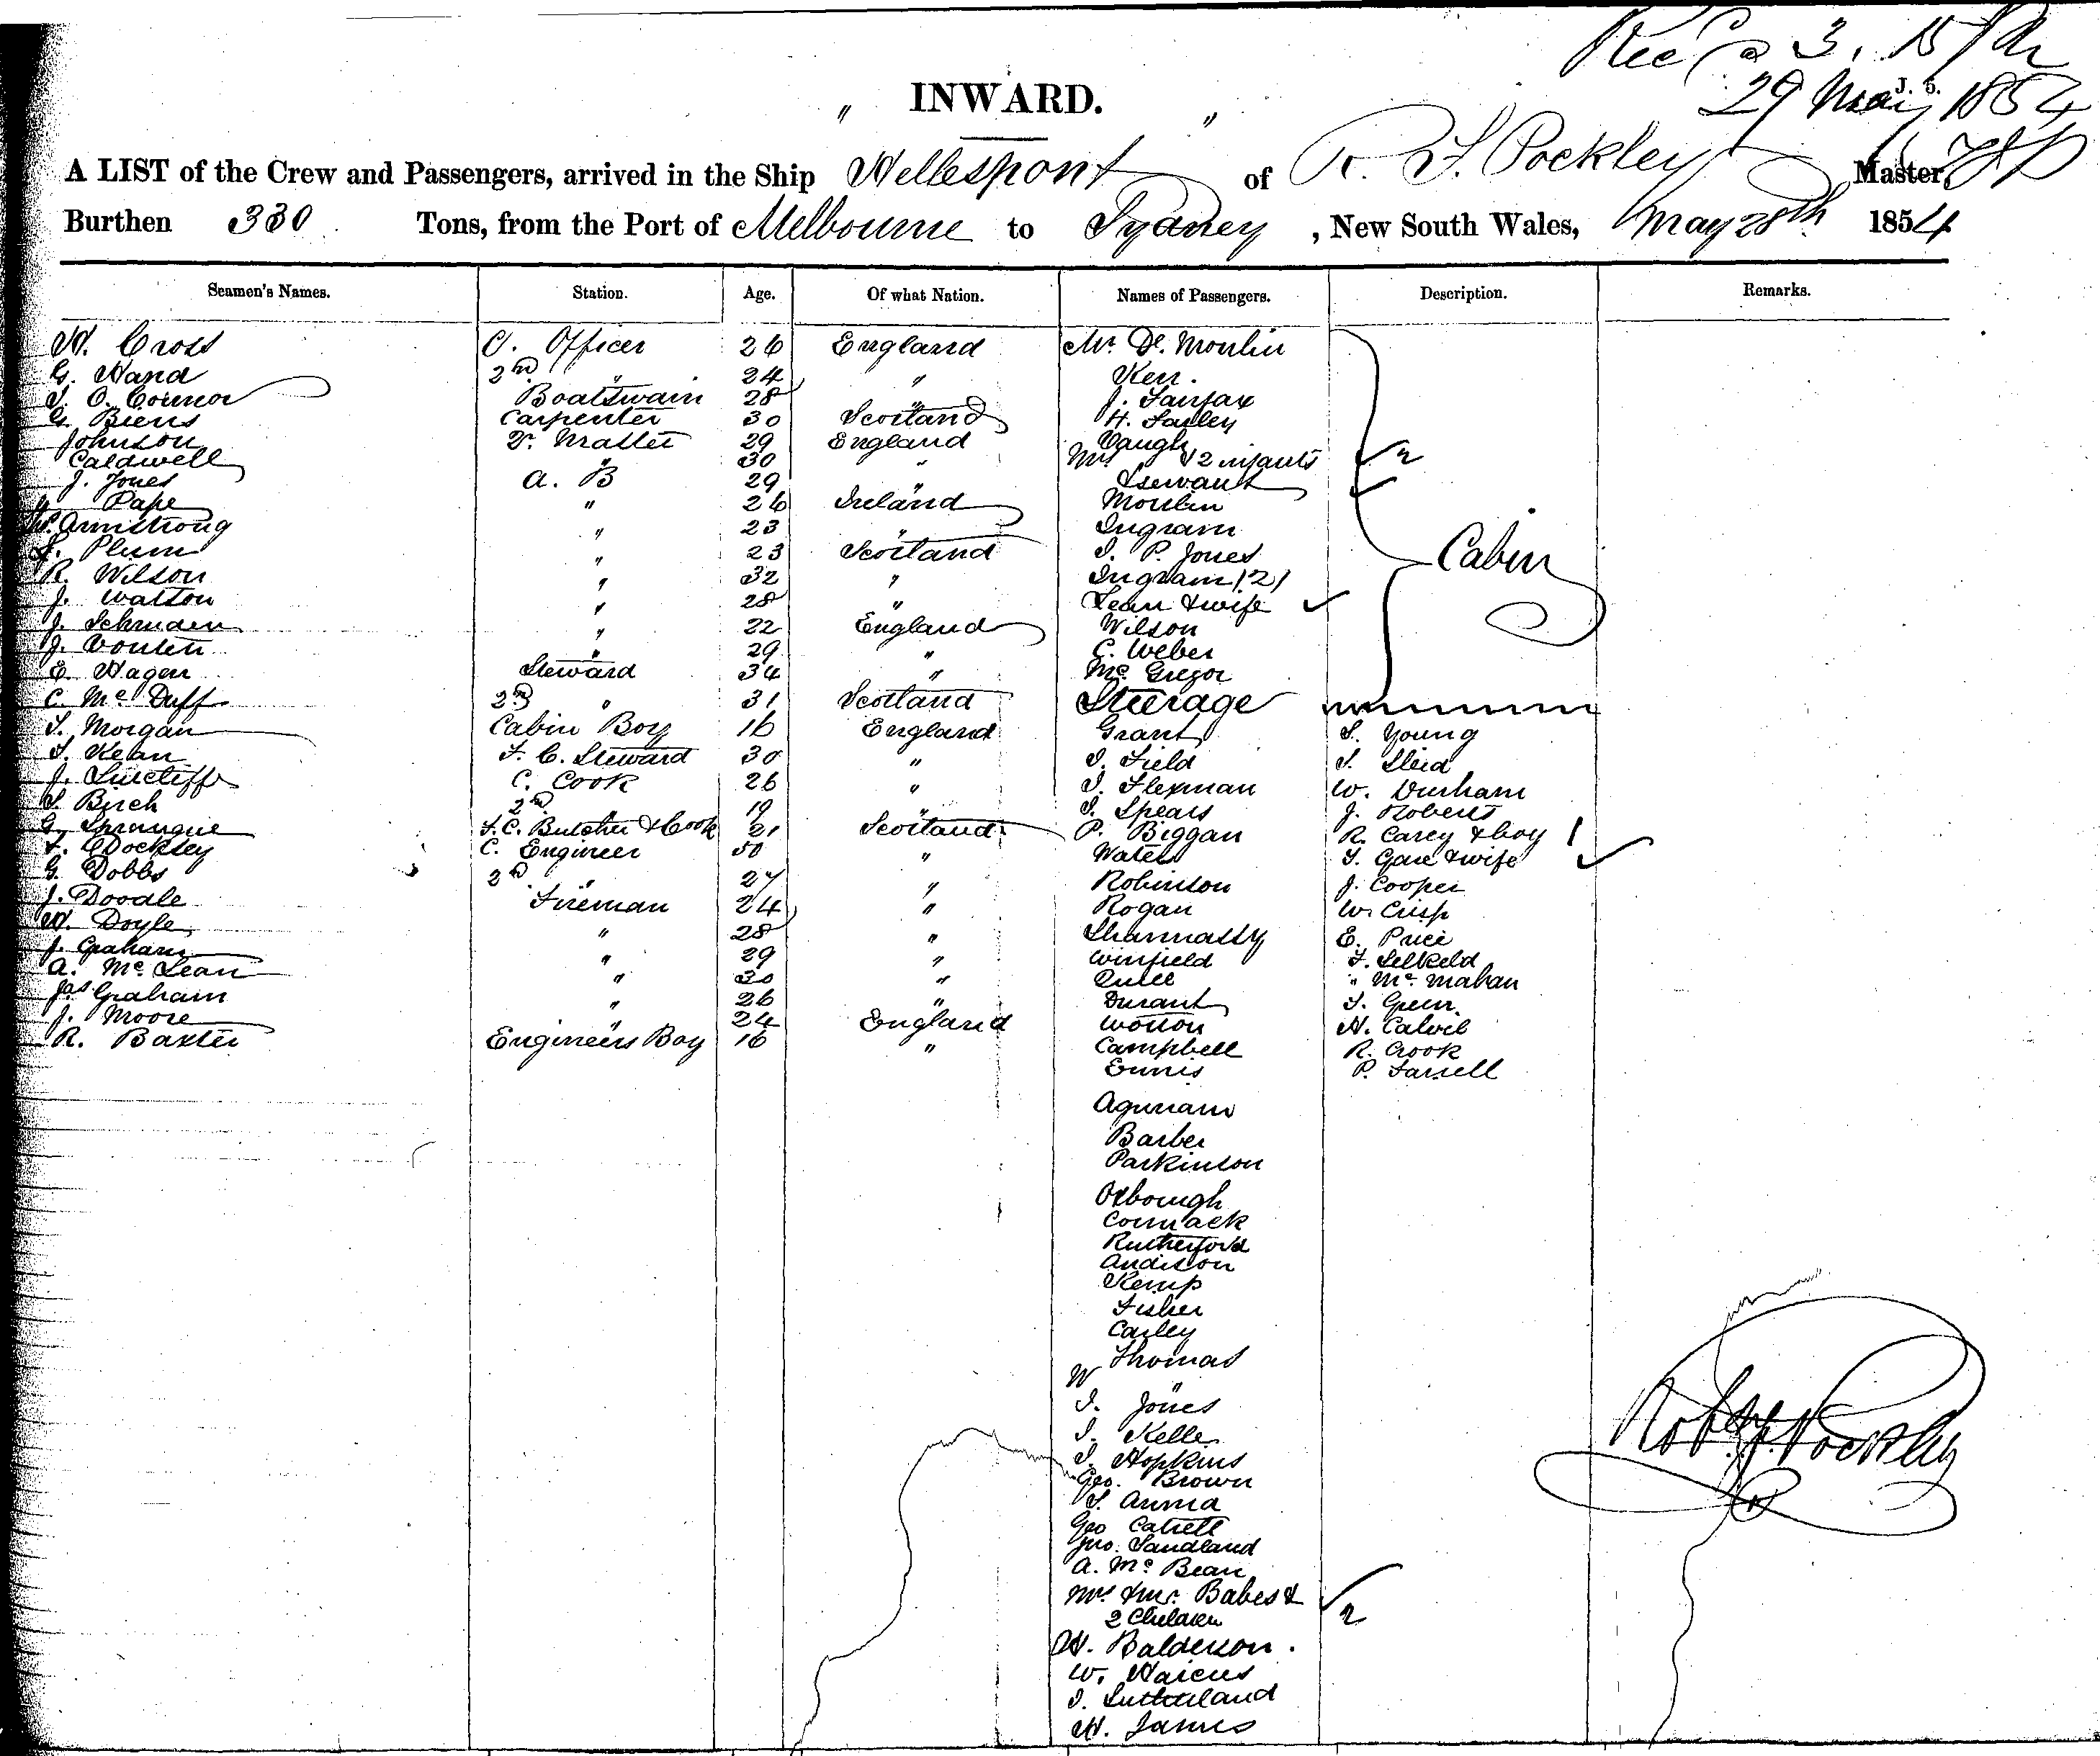 Rec'd @ 3. 15 PM
29 May 1854
J. 5.
" INWARD. "
A LIST of the Crew and Passengers, arrived in the Ship Hellespont of R. F. Pockley Master,
Burthen 330 Tons, from the Port of Melbourne to Sydney, New South Wales, May 28th 1854
Seamen's Names. Station. Age. Of what Nation. Names of Passengers. Description. Remarks.
W. Cross C. Officer 26 England Mr. De Moulin
G. Hand 2nd " 24 " Kerr.
T. O. Connor Boatswain 28 " J. Fairfax
G. Biens Carpenter 30 Scotland H. Farley
Johnson Qr. Master 29 England Vaugh
Caldwell " 30 " Mrs & 2 infants
J. Jones A. B 29 " & servant
Pape " 26 Ireland Moulin
Armstrong " 23 " Ingram
Plum " 23 Scotland J. P. Jones
R. Wilson " 32 " Ingram (2) Cabin
J. Watson " 28 " Lean & wife
J. Schruden " 22 England Wilson
J. " 29 " C. Weber
E. Hagen Steward 34 " Mc. Gregor
C. Mc Duff 2nd " 31 Scotland Steerage
T. Morgan Cabin Boy 16 England Grant S. Young
T. Kean F. C. Steward 30 " J. Field
J. Sutcliffe C. Cook 26 " J. Flexman W. Durham
S. Birch 2nd " 19 " J. Spears J. Roberts
G. F. C. Butcher & Cook 21 Scotland P. Biggan R. Carey & boy 1
C. Engineer 50 " Waters T. Gare & wife
G. Dobbs 2nd " 27 " Robinson J. Cooper
J. Doodle Fireman 24 " Rogan W. Crisp
W. Doyle " 28 " E. Price
J. Graham " 29 " Winfield
A. Mc. Lean " 30 " " Mc. Mahan
Jas Graham " 26 " Durant T. Green
J. Moore " 24 England Wotton
R. Baxter Engineers Boy 16 " Campbell R. Crook
Ennis P. Farrell
Barber
Parkinson
Oxborough
Cormack
Rutherford
Andison
Kemp
Fisher
Carley
Thomas
W "
J. Jones
J. Kelle
J. Hopkins
Geo. Brown
Geo
Jno. Sandland
A. Mc. Bean
Mr & Mrs. Babes &
2 Children
2
H. Balderson.
W.
J. Sutherland
W. James
Robt F. Pockley